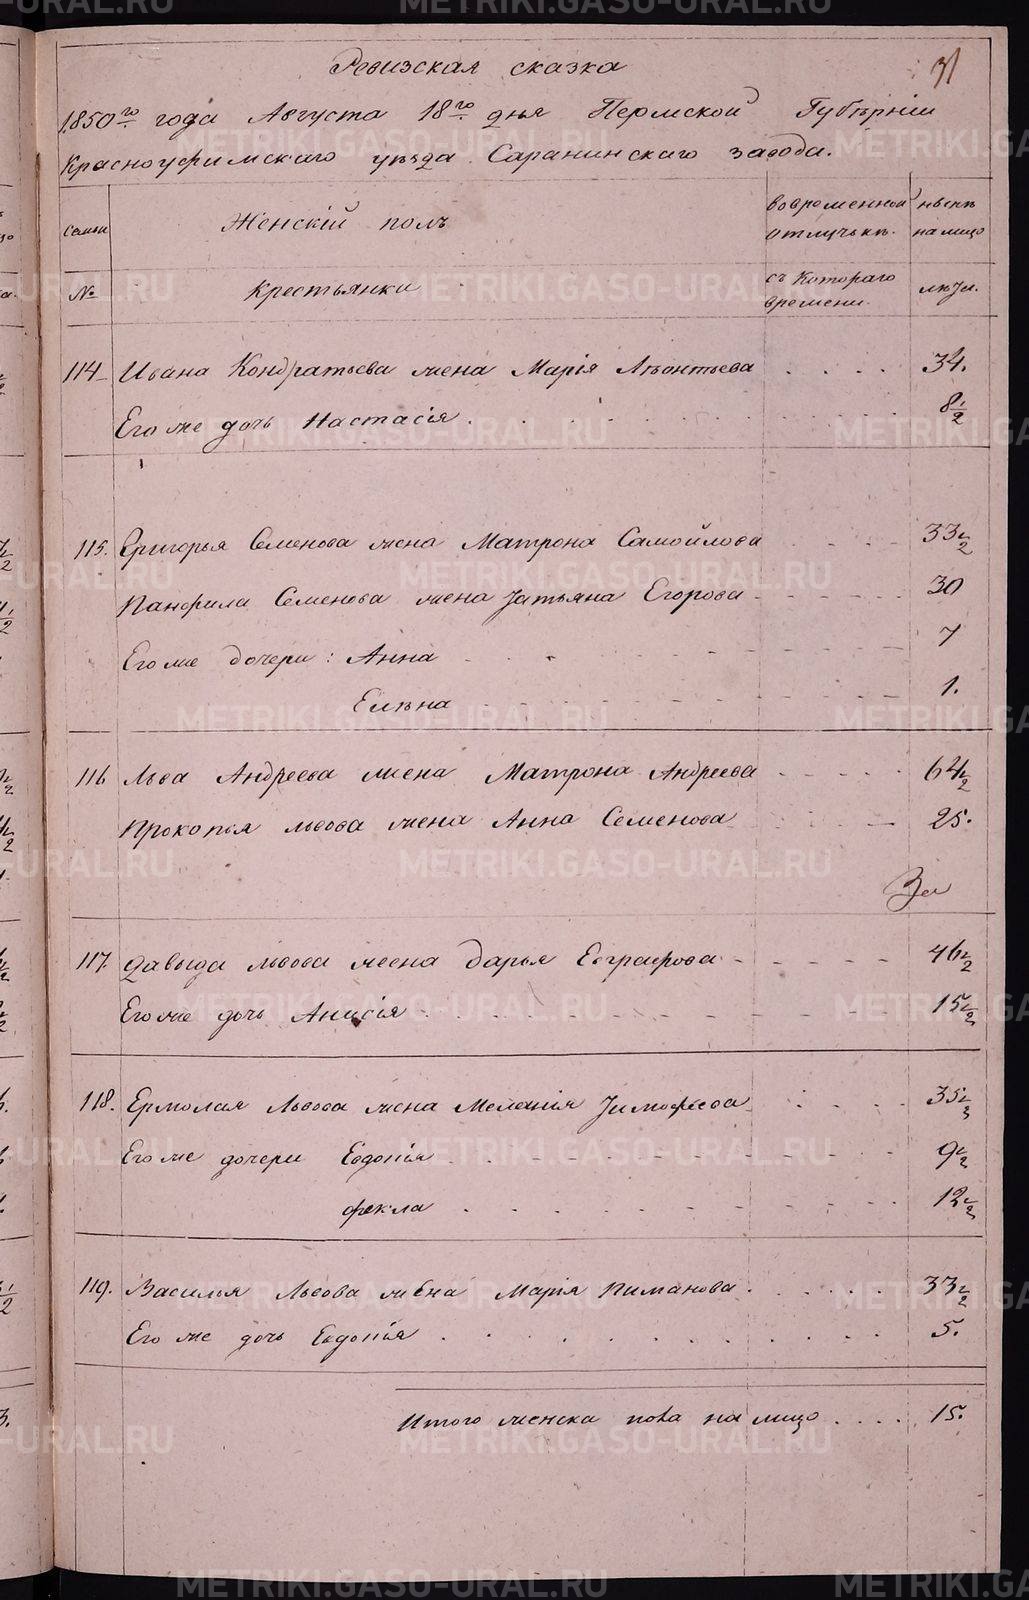 31
Ревизская сказка
1850го года Августа 18го дня Пермской Губѣрніи
Красноуфимскаго уѣзда Саранинскаго завода.
Семьи Женскій полъ вовременной отлучькѣ. нынѣ налицо
№ Крестьянки съ Котораго времени. лѣта.
114 Ивана Кондратьева жена Марія Лѣонтьева . . . . 34.
Его же дочь Настасія . . . . 8 1/2
115. Григорья Семенова жена Матрона Самойлова - - - - 33 1/2
Панфила Семенова жена Татьяна Егорова - - - - 30
Его же дочери: Анна - - - - 7
Елѣна - - - - 1.
116 Льва Андреева жена Матрона Андреева - - - - 64 1/2
Прокопья Львова жена Анна Семенова - - - - 25.
За
117. Давыда Львова жена Дарья Евграфова - - - - 46 1/2
Его же дочь Анисія . . . . 15 1/2
118. Ермолая Львова жена Меланія Тимофеева . . . . 35 1/2
Его же дочери Евдокія . . . . 9 1/2
Фекла . . . . 12 1/2
119. Василья Львова жена Марія Пиманова . . . . 33 1/2
Его же дочь Евдокія . . . . 5.
Итого женска пола налицо . . . . 15.
METRIKI.GASO-URAL.RU